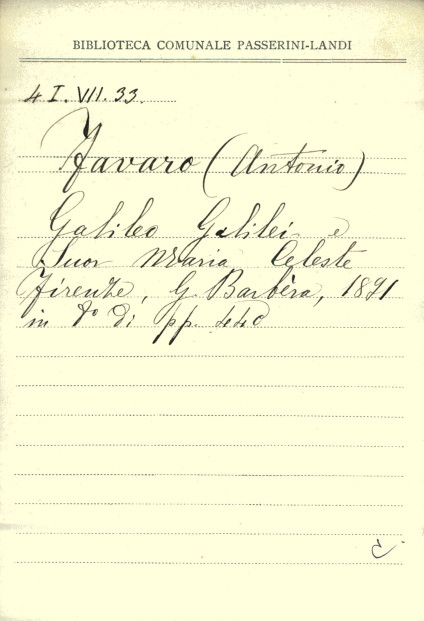 BIBLIOTECA COMUNALE PASSERINI-LANDI
4 I. VII. 33.
Favaro (Antonio)
Galileo Galilei e
Suor Maria Celeste
Firenze, G. Barbèra, 1891
in 8º di pp. 440